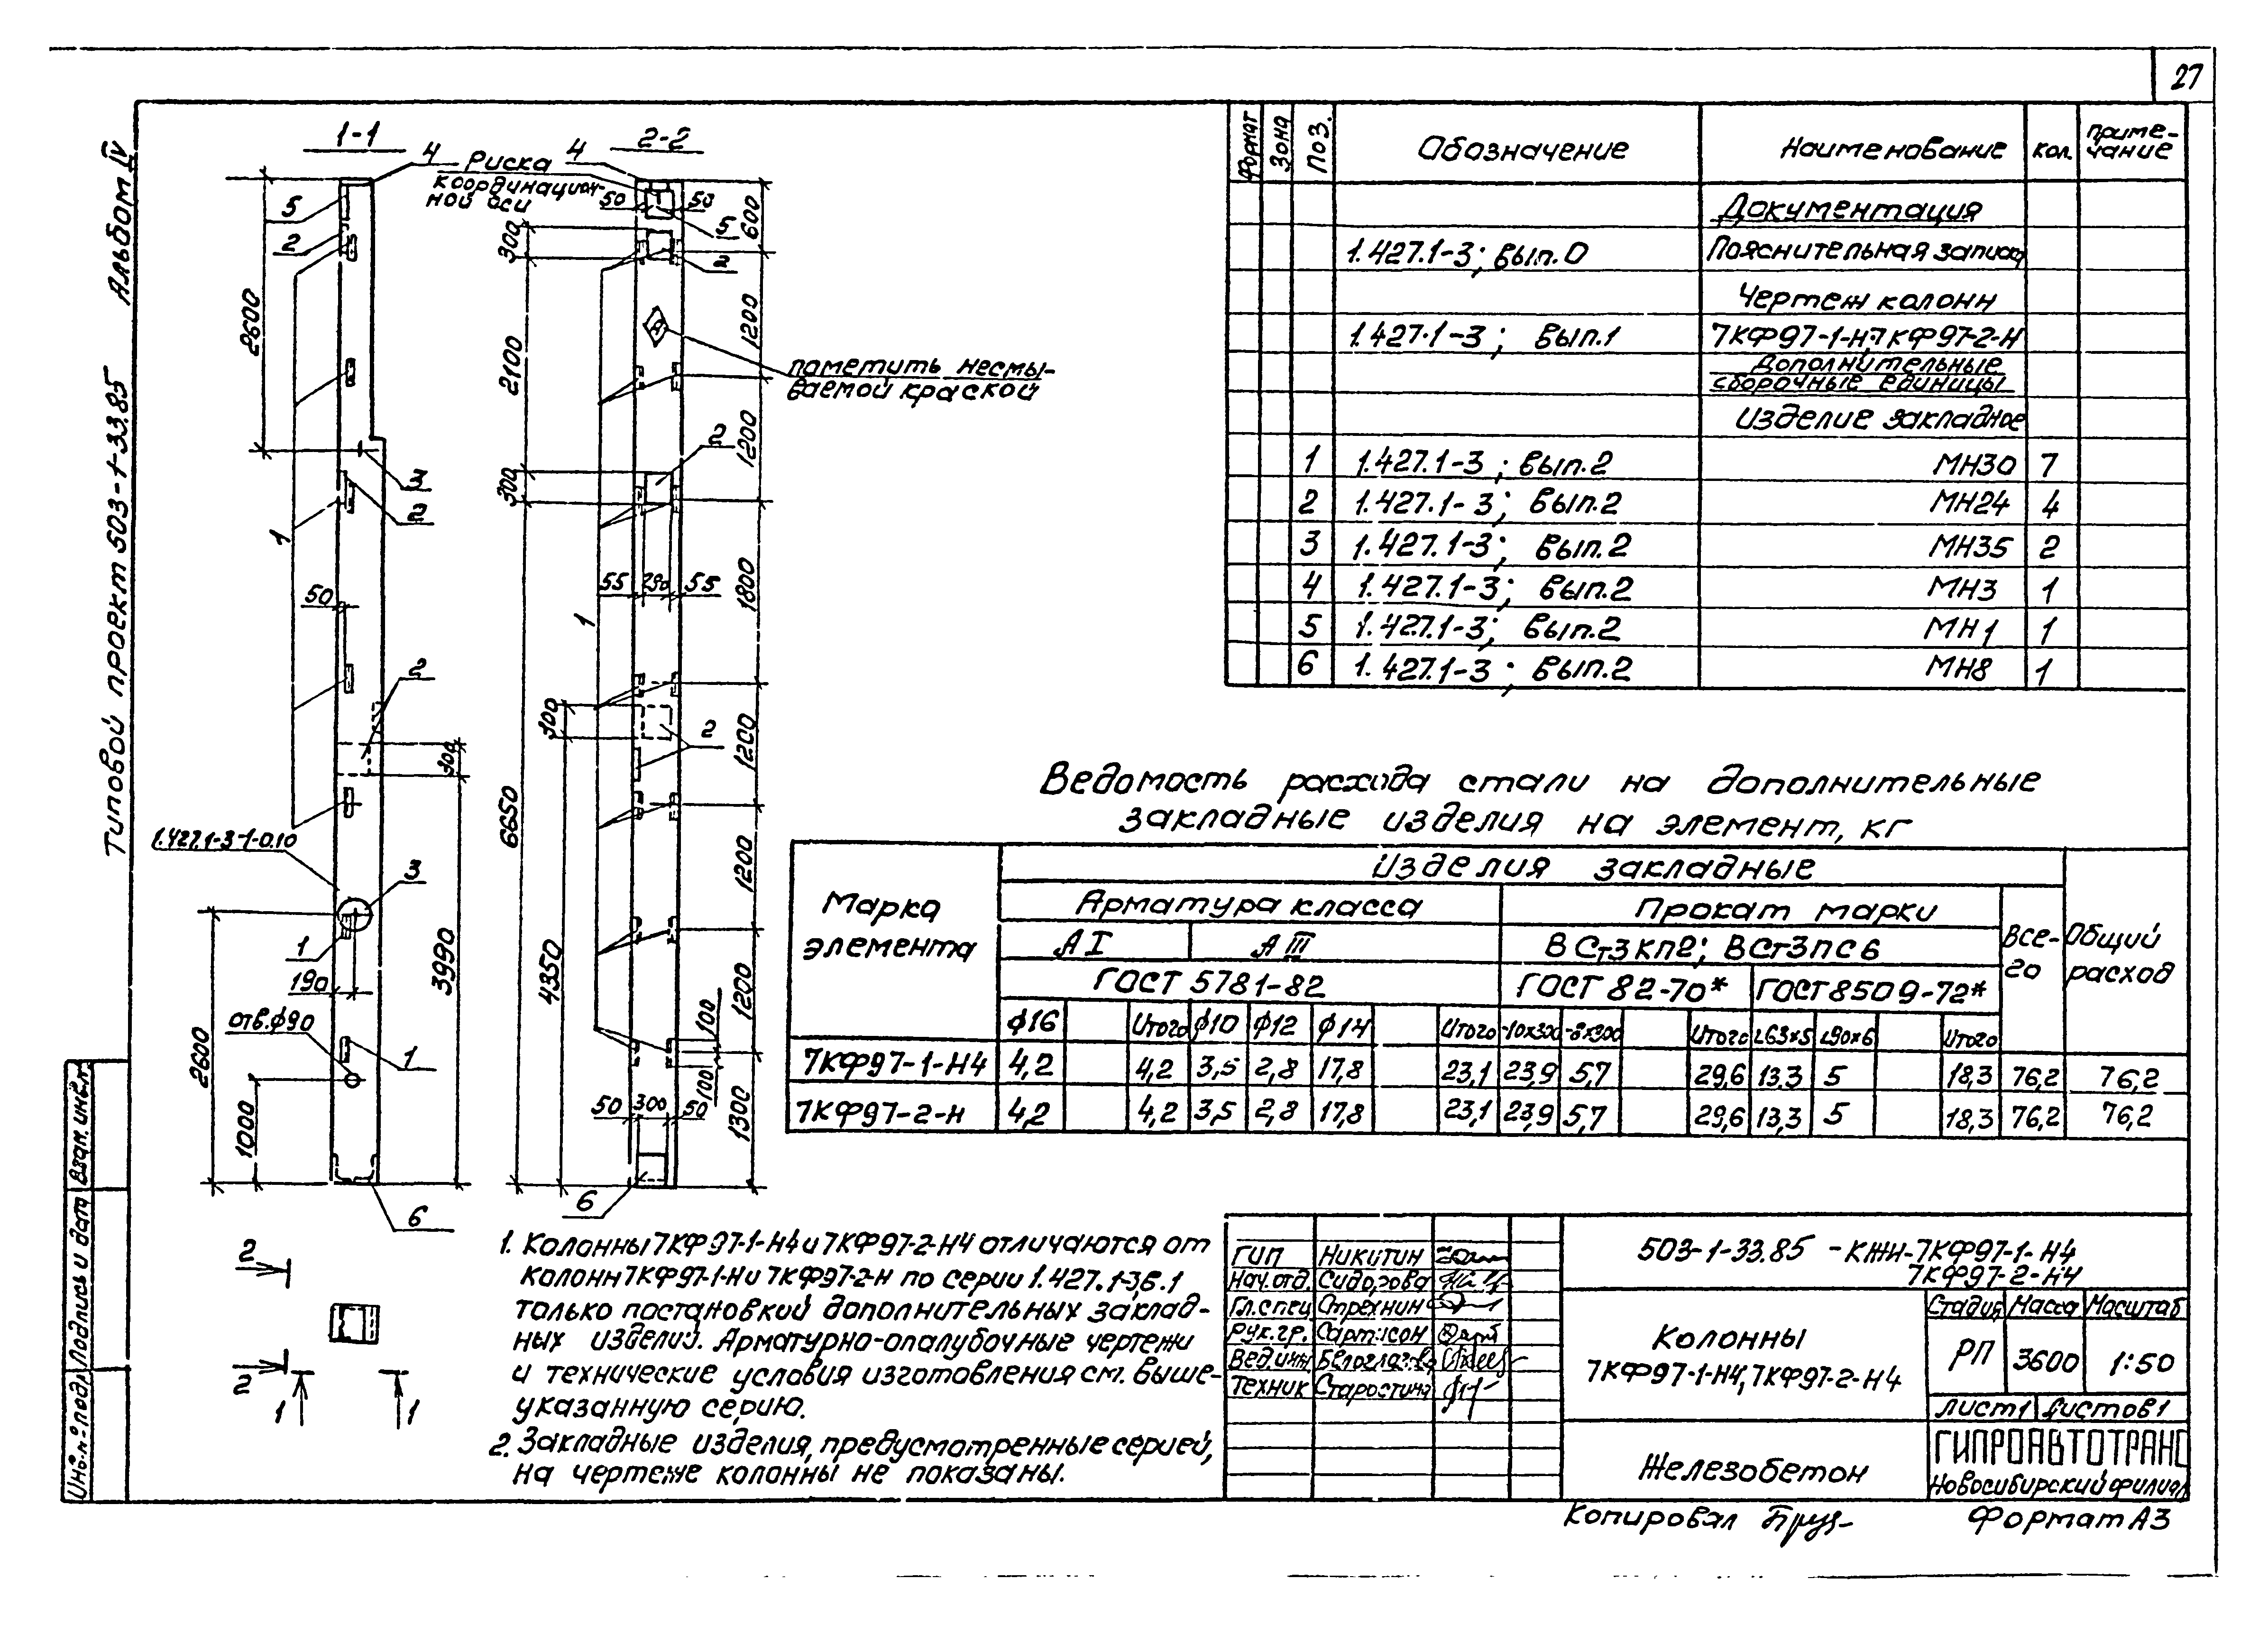 27
Типовой проект 503-1-33.85 Альбом IV
1-1
2-2
4 Риска
координацион-
ной оси
4
5
2
2600
3
2
1
50
2
300
1.427.1-3-1-0.10
3
1
190
отв. ф90
1
2600
1000
3990
6
50 50
5
2
600
300
1200
2100
пометить несмы-
ваемой краской
2
1200
300
55 290 55
1800
1
300
2
1200
6650
1200
4350
1200
100
100
50 300 50
1300
6
2
2
1 1
Формат Зона Поз. Обозначение Наименование Кол. Приме-
чание
Документация
1.427.1-3; вып.0 Пояснительная записка
Чертеж колонн
1.427.1-3; Вып.1 7КФ97-1-Н,7КФ97-2-Н
Дополнительные
сборочные единицы
Изделие закладное
1 1.427.1-3; вып.2 МН30 7
2 1.427.1-3; вып.2 МН24 4
3 1.427.1-3; вып.2 МН35 2
4 1.427.1-3; вып.2 МН3 1
5 1.427.1-3; вып.2 МН1 1
6 1.427.1-3; вып.2 МН8 1
Ведомость расхода стали на дополнительные
закладные изделия на элемент, кг
Марка
элемента
Изделия закладные
Арматура класса Прокат марки
АI АIII ВСт3кп2; ВСт3пс6
Все-
го
Общий
расход
ГОСТ 5781-82 ГОСТ 82-70* ГОСТ 8509-72*
ф16 Итого ф10 ф12 ф14 Итого -10х300 -8х300 Итого L63х5 L90х6 Итого
7КФ97-1-Н4 4,2 4,2 3,5 2,8 17,8 23,1 23,9 5,7 29,6 13,3 5 18,3 76,2 76,2
7КФ97-2-Н 4,2 4,2 3,5 2,8 17,8 23,1 23,9 5,7 29,6 13,3 5 18,3 76,2 76,2
1. Колонны 7КФ97-1-Н4 и 7КФ97-2-Н4 отличаются от
колонн 7КФ97-1-Н и 7КФ97-2-Н по серии 1.427.1-3,в.1
только постановкой дополнительных заклад-
ных изделий. Арматурно-опалубочные чертежи
и технические условия изготовления см. выше-
указанную серию.
2. Закладные изделия, предусмотренные серией,
на чертеже колонны не показаны.
ГИП Никитин
Нач.отд. Сидорова
Гл.спец Стрехнин
Рук.гр. Сартисон
Вед.инж Белоглазова
Техник Старостина
503-1-33.85 -КЖИ-7КФ97-1-Н4
7КФ97-2-Н4
Колонны
7КФ97-1-Н4, 7КФ97-2-Н4
Стадия Масса Масштаб
РП 3600 1:50
Лист 1 Листов 1
Железобетон
ГИПРОАВТОТРАНС
Новосибирский филиал
Копировал
Формат А3
Инв.№ подл Подпись и дата Взам.инв.№